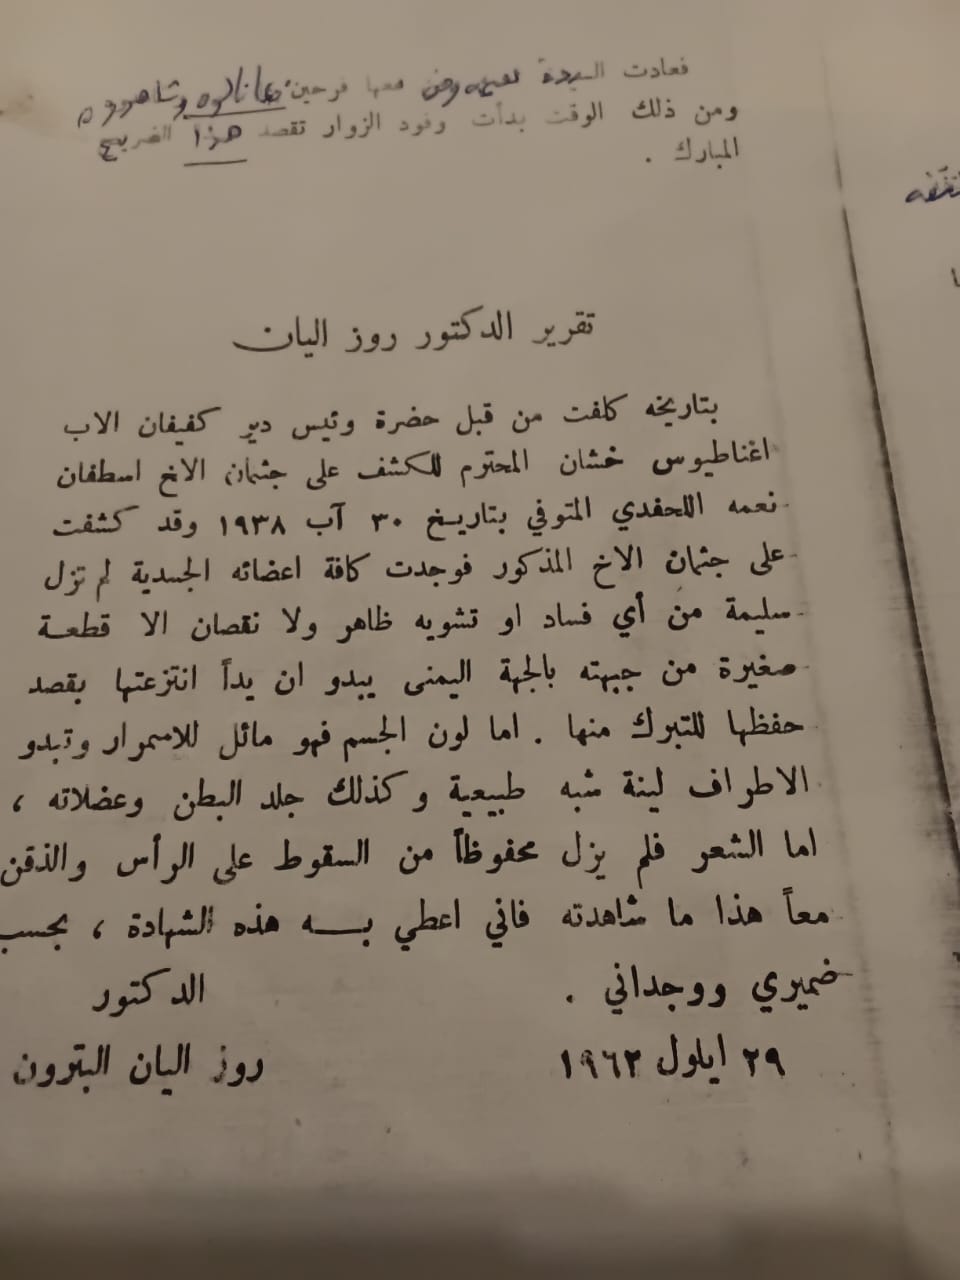 فعادت السيدة نعيمه ومن معها فرحين بما نالوه وشاهدوه
ومن ذلك الوقت بدأت وفود الزوار تقصد هذا الضريح
المبارك .
تقرير الدكتور روز اليان
بتاريخه كلفت من قبل حضرة رئيس دير كفيفان الاب
اغناطيوس خشان المحترم للكشف على جثمان الاخ اسطفان
نعمه اللحفدي المتوفي بتاريخ ٣٠ آب ١٩٣٨ وقد كشفت
على جثمان الاخ المذكور فوجدت كافة اعضائه الجسدية لم تزل
سليمة من أي فساد او تشويه ظاهر ولا نقصان الا قطعة
صغيرة من جبهته بالجهة اليمنى يبدو ان يداً انتزعتها بقصد
حفظها للتبرك منها . اما لون الجسم فهو مائل للاسمرار وتبدو
الاطراف لينة شبه طبيعية وكذلك جلد البطن وعضلاته ،
اما الشعر فلم يزل محفوظاً من السقوط على الرأس والذقن
معاً هذا ما شاهدته فاني اعطي به هذه الشهادة ، بحسب
ضميري ووجداني . الدكتور
٢٩ ايلول ١٩٦٢ روز اليان البترون